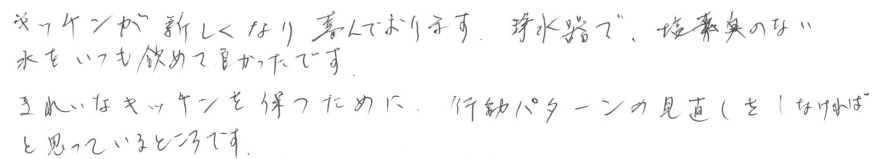 キッチンが新しくなり喜んでおります。浄水器で、塩素臭のない
水をいつも飲めて良かったです。
きれいなキッチンを保つために、行動パターンの見直しをしなければ
と思っているところです。